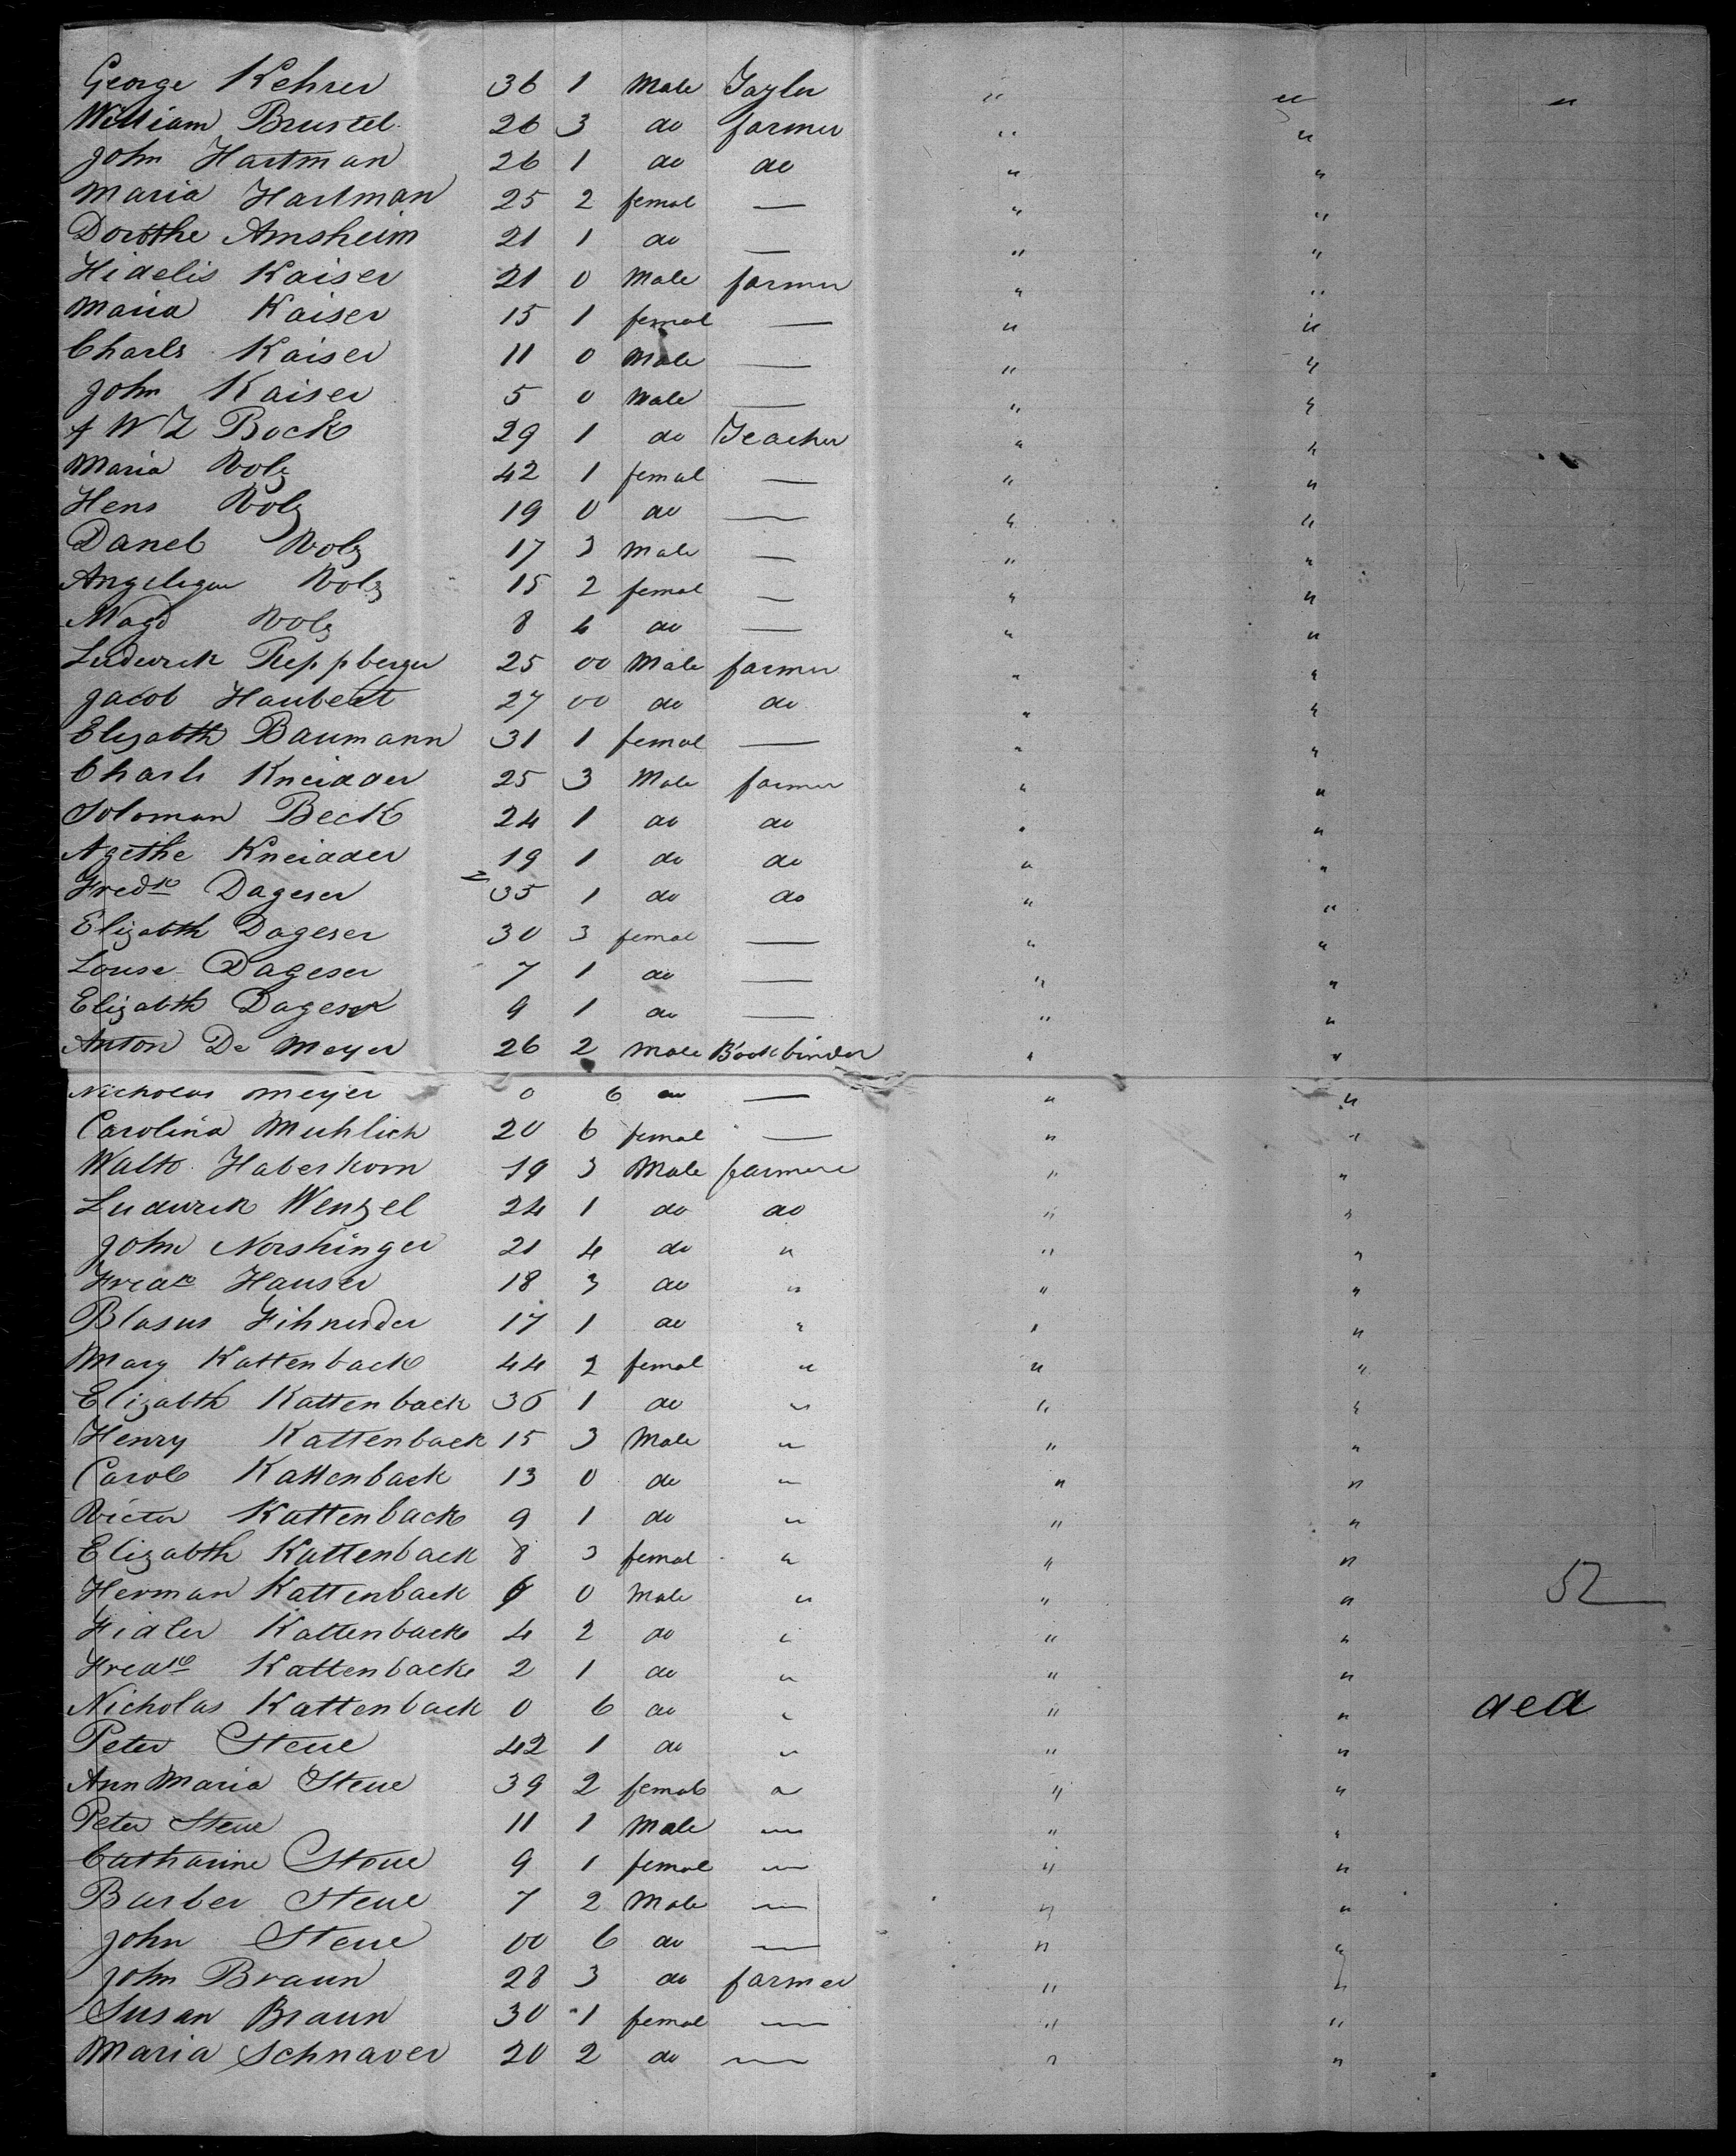 George Kehrer 36 1 Male Tayler " " "
William Brustel 26 3 do farmer " "
John Hartman 26 1 do do " "
Maria Hartman 25 2 femal — " "
Dorothe Arnsheim 21 1 do — " "
Fidelis Kaiser 21 0 Male farmer " "
Maria Kaiser 15 1 femal — " "
Charls Kaiser 11 0 Male — " "
John Kaiser 5 0 Male — " "
F W Z Bock 29 1 do Teacher " "
Maria Volz 42 1 femal — " "
Hens Volz 19 0 do — " "
Danel Volz 17 3 Male — " "
Angeliqu Volz 15 2 femal — " "
Magd Volz 8 4 do — " "
Ludwick Reppberger 25 00 Male farmer " "
Jacob Haubert 27 00 do do " "
Elizabth Baumann 31 1 femal — " "
Charls Kneidder 25 3 Male farmer " "
Soloman Beck 24 1 do do " "
Agethe Kneidder 19 1 do do " "
Fredk Dageser 35 1 do do " "
Elizabth Dageser 30 3 femal — " "
Louse Dageser 7 1 do — " "
Elizabth Dageser 9 1 do — " "
Anton De Meyer 26 2 Male Bookbinder " "
Nicholas Meyer 0 6 do — " "
Carolina Muhlich 20 6 femal — " "
Walto Haberkorn 19 3 Male farmer " "
Ludwick Wenzel 24 1 do do " "
John Norshinger 21 4 do " " "
Fredk Hauser 18 3 do " " "
Blasus 17 1 do " " "
Mary Kattenback 44 2 femal " " "
Elizabth Kattenback 36 1 do " " "
Henry Kattenback 15 3 Male " " "
Carol Kattenback 13 0 do " " "
Victor Kattenback 9 1 do " " "
Elizabth Kattenback 8 3 femal " " "
Herman Kattenback 6 0 Male " " " 52
Fidler Kattenback 4 2 do " " "
Fredk Kattenback 2 1 do " " "
Nicholas Kattenback 0 6 do " " " ded
Peter Steue 42 1 do " " "
Ann Maria Steue 39 2 femal " " "
Peter Steue 11 1 Male — " "
Catharine Steue 9 1 femal — " "
Barber Steue 7 2 Male — " "
John Steue 00 6 do — " "
John Braun 28 3 do farmer " "
Susan Braun 30 1 femal — " "
Maria Schnaver 20 2 do — " "